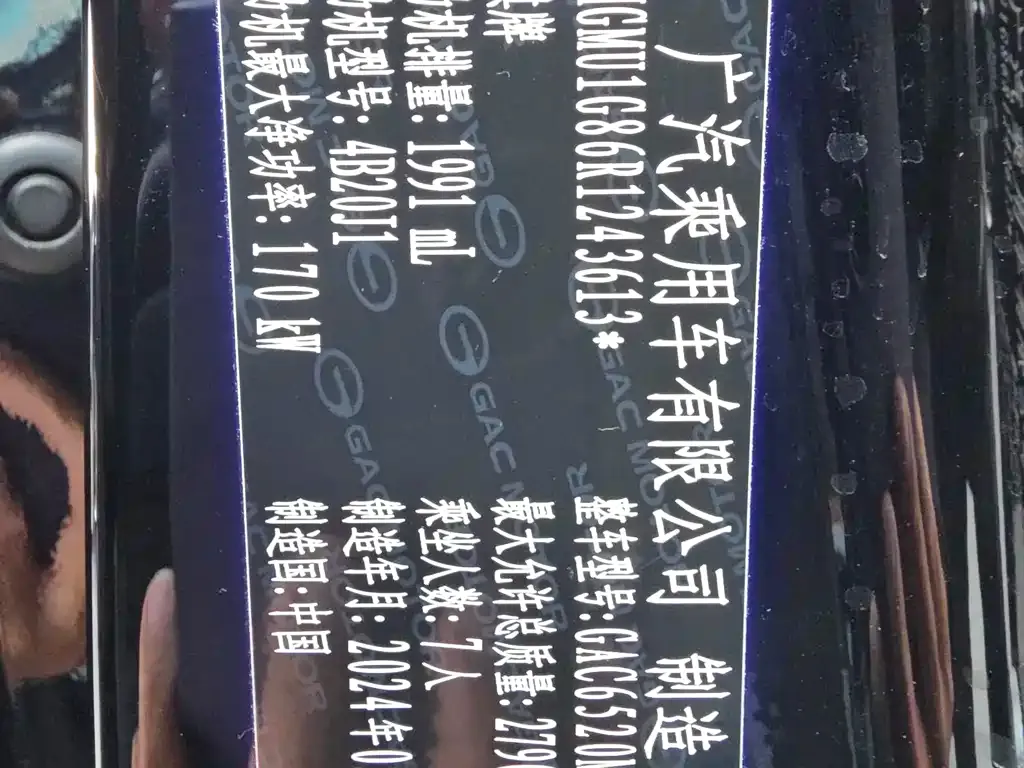 广汽乘用车有限公司 制造
GMU1G86R1243613*
整车型号:GAC6520
牌
最大允许总质量:279
机排量:1991 mL
乘坐人数:7人
机型号:4B20J1
制造年月:2024年0
机最大净功率:170 kW
制造国:中国
GAC MOTOR